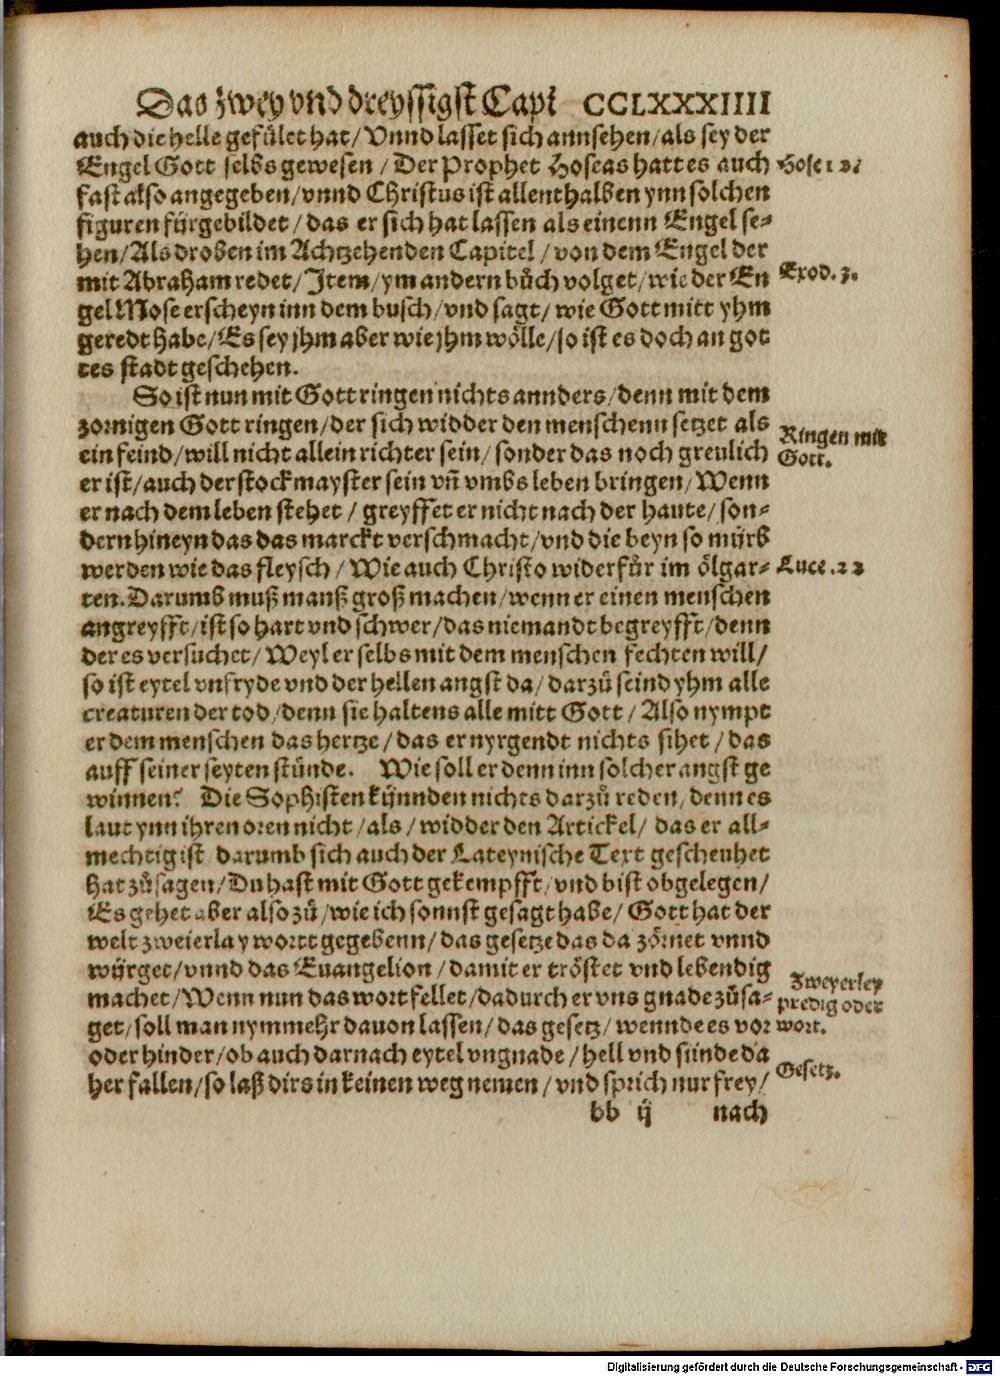 Das zwey vnd dreyssigst Capi CCLXXXIIII
auch die helle gefület hat/ Vnnd lasset sich annsehen/als sey der
Engel Gott selbs gewesen / Der Prophet Hoseas hatt es auch
Hose 12;
fast also angegeben/vnnd Christus ist allenthalben ynn solchen
figuren fürgebildet / das er sich hat lassen als einenn Engel se-
hen/Als droben im Achtzehenden Capitel / von dem Engel der
mit Abraham redet / Item/ym andern bůch volget/wie der En
Exod. 3.
gel Mose erscheyn inn dem busch/vnd sagt/ wie Gott mitt yhm
geredt habe/Es sey jhm aber wie jhm wölle/so ist es doch an got
tes stadt geschehen.
So ist nun mit Gott ringen nichts annders/denn mit dem
zornigen Gott ringen/der sich widder den menschenn setzet als
Ringen mit
Gott.
ein feind/will nicht allein richter sein/ sonder das noch greulich
er ist/auch der stockmayster sein vñ vmbs leben bringen/Wenn
er nach dem leben stehet / greyffet er nicht nach der haute/son-
dern hineyn das das marckt verschmacht/vnd die beyn so mürb
werden wie das fleysch / Wie auch Christo widerfůr im ölgar-
Luce .22
ten. Darumb muß manß groß machen/wenn er einen menschen
angreyfft/ist so hart vnd schwer/das niemandt begreyfft/denn
der es versuchet/ Weyl er selbs mit dem menschen fechten will/
so ist eytel vnfryde vnd der hellen angst da/ darzů seind yhm alle
creaturen der tod/denn sie haltens alle mitt Gott / Also nympt
er dem menschen das hertze/das er nyrgendt nichts sihet/das
auff seiner seyten stünde. Wie soll er denn inn solcher angst ge
winnen? Die Sophisten kynnden nichts darzů reden/denn es
laut ynn ihren oren nicht/als/widder den Artickel/ das er all-
mechtig ist darumb sich auch der Lateynische Text gescheuhet
hat zůsagen/Du hast mit Gott gekempfft/vnd bist obgelegen/
Es gehet aber also zů/wie ich sonnst gesagt habe/ Gott hat der
welt zweierlay wortt gegebenn/das gesetze das da zörnet vnnd
würget/vnnd das Euangelion/damit er tröstet vnd lebendig
machet/Wenn nun das wort fellet/dadurch er vns gnade zůsa-
Zweyerley
predig oder
wort.
get/soll man nymmehr dauon lassen/das gesetz/wenn de es vor
oder hinder/ob auch darnach eytel vngnade/hell vnd sünde da
Gesetz.
her fallen/so laß dirs in keinen weg nemen/vnd sprich nur frey/
bb ij nach
Digitalisierung gefördert durch die Deutsche Forschungsgemeinschaft - DFG